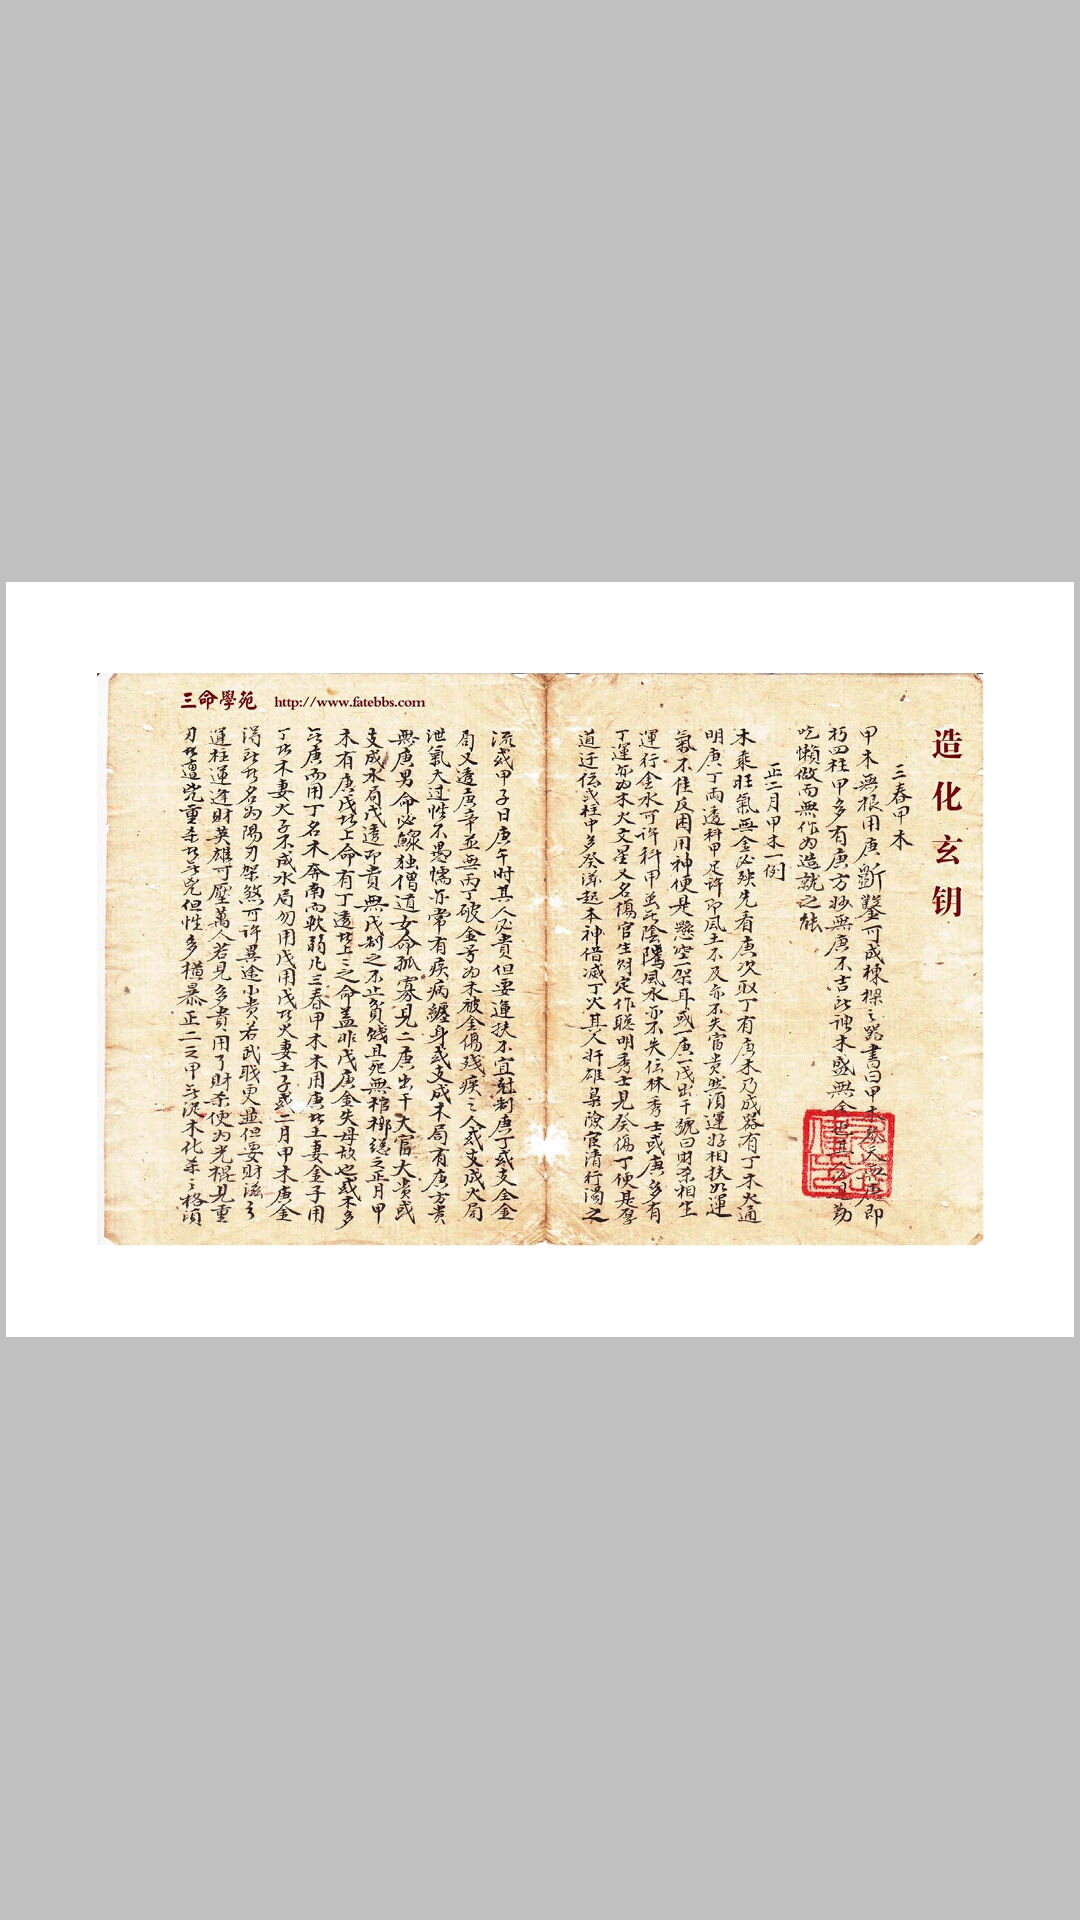 造化玄钥
三春甲木
甲木無根用庚斷鑿可成棟樑之器書曰甲木
即
朽四柱甲多有庚方妙無庚不吉
木盛無金
勤
吃懶做而無作為造就之能
正二月甲木一例
木乘旺氣無金必殃先看庚次取丁有庚木乃成器有丁木火通
明庚丁兩透科甲定許即風土不及亦不失富貴然須運好相扶如運
氣不佳反困用神便是懸空一架耳或一庚一戊出干號曰財杀相生
運行金水可許科甲並無陰騭風水亦不失伝林秀士或庚多有
丁運亦為木火文星又名傷官生財定作聰明秀士見癸傷丁便是厚
道迂伝或柱中多癸滋起本神借滅丁火其人奸雄梟險官清行濁之
流或甲子日庚午時其人必貴但要運扶不宜尅制庚丁或支全金
局又透庚辛並無丙丁破金号為木被金傷殘疾之人或支成火局
泄氣太过性不愚懦亦常有疾病纏身或支成木局有庚方貴
無庚男命必鰥独僧道女命孤寡見二庚出干大富大貴或
支成水局戊透而貴無戊制之不止貧賤且死無棺槨總之正月甲
木有庚戊者上命有丁透者上之命蓋非戊庚金失母故也或木多
無庚而用丁名木奔南而軟弱凡三春甲木木用庚者土妻金子用
丁者木妻火子不成水局勿用戊用戊者火妻土子或二月甲木庚金
得所者名为陽刃架煞可許異途小貴若武職更並但要財滋
運柱運逢財英雄可壓萬人若見多貴用了財杀便为光棍見重
刃者遭兇重杀者無兇但性多橫暴正二之甲無从木化杀之格須
三命學苑 http://www.fatebbs.com